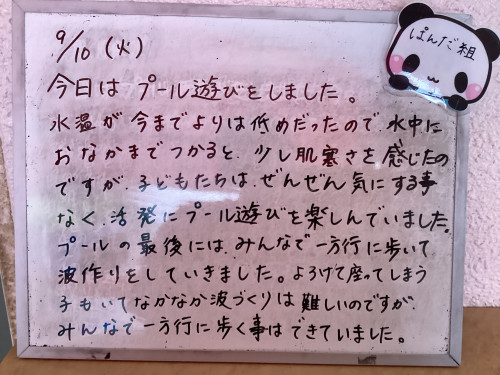 9/10 (火)
ぱんだ組
今日は プール遊びをしました。
水温が今までよりは低めだったので、水中に
おなかまでつかると、少し肌寒さを感じたの
ですが、子どもたちは、ぜんぜん気にする事
なく、活発にプール遊びを楽しんでいました。
プールの最後には、みんなで一方行に歩いて
波作りをしていきました。よろけて座ってしまう
子もいてなかなか波づくりは難しいのですが、
みんなで一方行に歩く事はできていました。